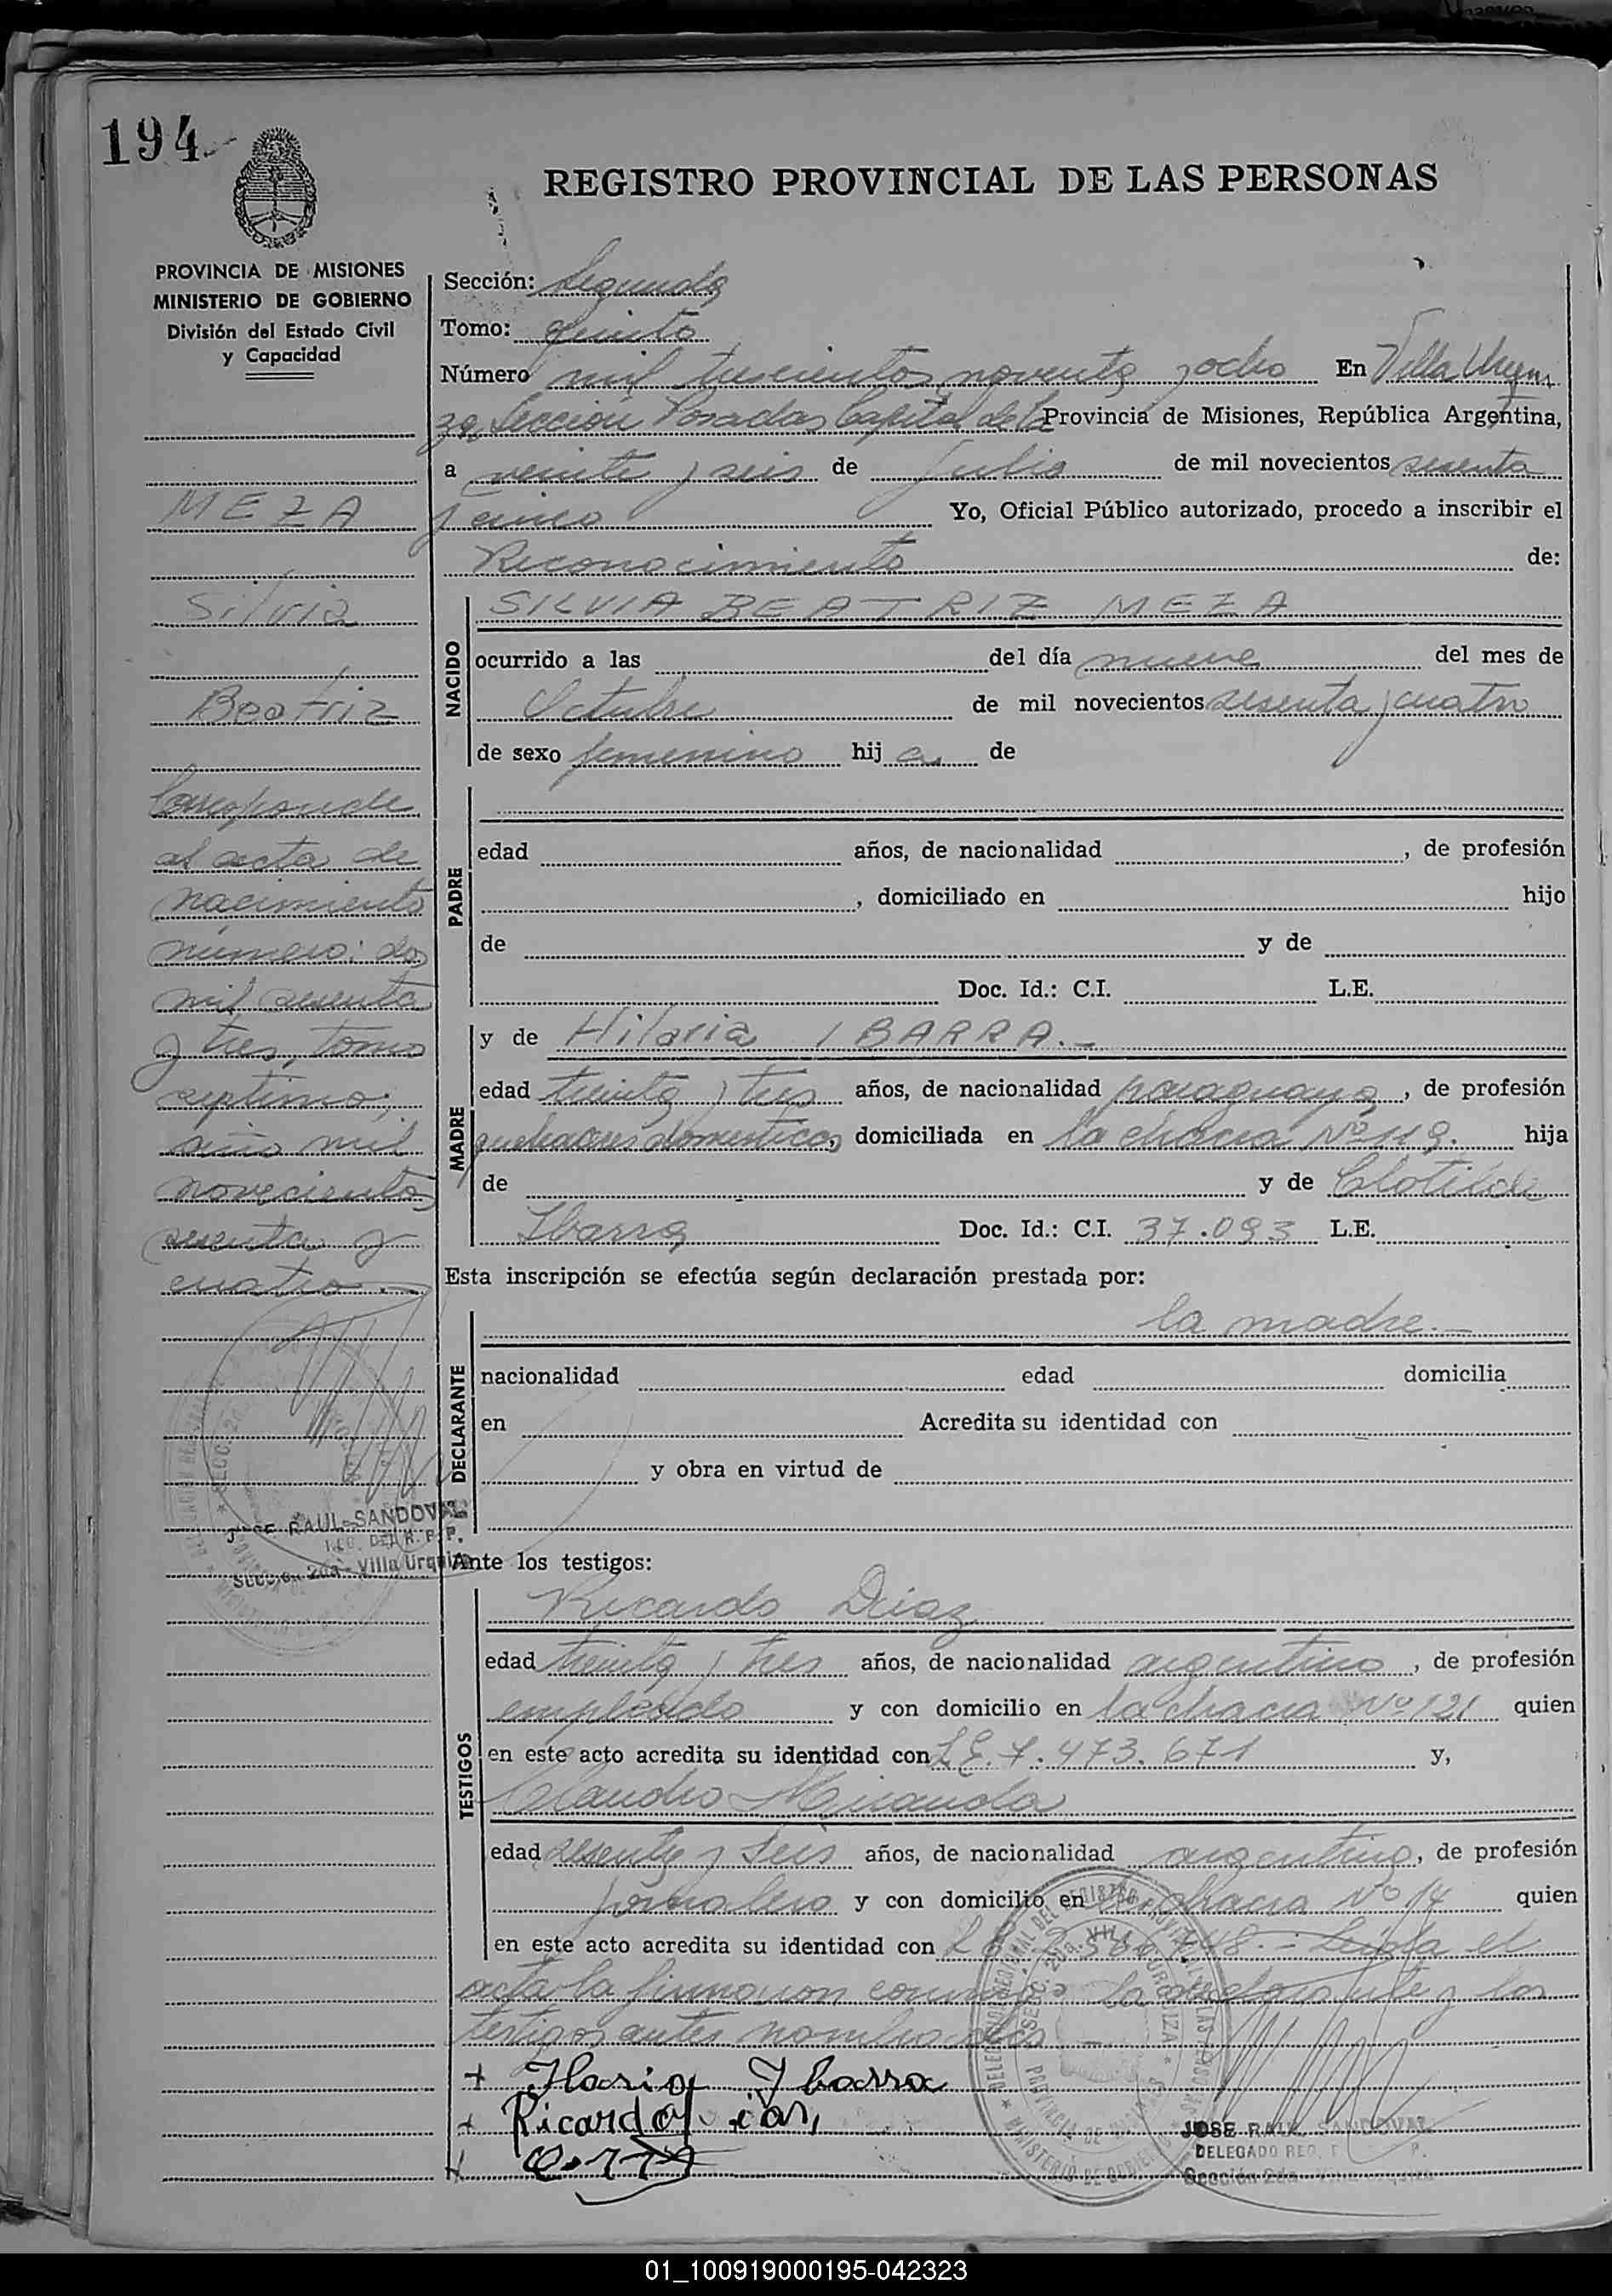 194
REGISTRO PROVINCIAL DE LAS PERSONAS
PROVINCIA DE MISIONES
MINISTERIO DE GOBIERNO
División del Estado Civil
y Capacidad
MEZA
Silvia
Beatriz
Corresponde
al acta de
nacimiento
número: dos
mil sesenta
y tres, tomo
septimo,
año mil
novecientos
sesenta y
cuatro.-
JOSE RAUL SANDOVAL
DEL R. P. P.
Sección 2da - Villa Urquiza
Sección: Segunda
Tomo: quinto
Número mil trescientos noventa y ocho En Villa Urqui
za, Sección Posadas Capital de la Provincia de Misiones, República Argentina,
a veinte y seis de Julio de mil novecientos sesenta
y cinco Yo, Oficial Público autorizado, procedo a inscribir el
Reconocimiento de:
NACIDO
SILVIA BEATRIZ MEZA
ocurrido a las del día nueve del mes de
Octubre de mil novecientos sesenta y cuatro
de sexo femenino hij a de
PADRE
edad años, de nacionalidad , de profesión
, domiciliado en hijo
de y de
Doc. Id.: C.I. L.E.
MADRE
y de Hilaria IBARRA.-
edad treinta y tres años, de nacionalidad paraguaya, de profesión
quehaceres domesticos, domiciliada en la chacra Nº 119. hija
de y de Clotilde
Ibarra Doc. Id.: C.I. 37.093 L.E.
Esta inscripción se efectúa según declaración prestada por:
DECLARANTE
la madre.-
nacionalidad edad domicilia
en Acredita su identidad con
y obra en virtud de
Ante los testigos:
TESTIGOS
Ricardo Diaz
edad treinta y tres años, de nacionalidad argentino, de profesión
empleado y con domicilio en la chacra Nº 121 quien
en este acto acredita su identidad con L.E. 7.473.671 y,
Claudio Miranda
edad sesenta y seis años, de nacionalidad argentino, de profesión
jornalero y con domicilio en la chacra Nº 14 quien
en este acto acredita su identidad con L.E. 748.- Leída el
acta la firmaron conmigo la declarante y los
testigos antes nombrados
+ Ilaria Ibarra
+ Ricardo
+
JOSE RAUL SANDOVAL
DELEGADO REG. P.
Sección 2da
01_100919000195-042323